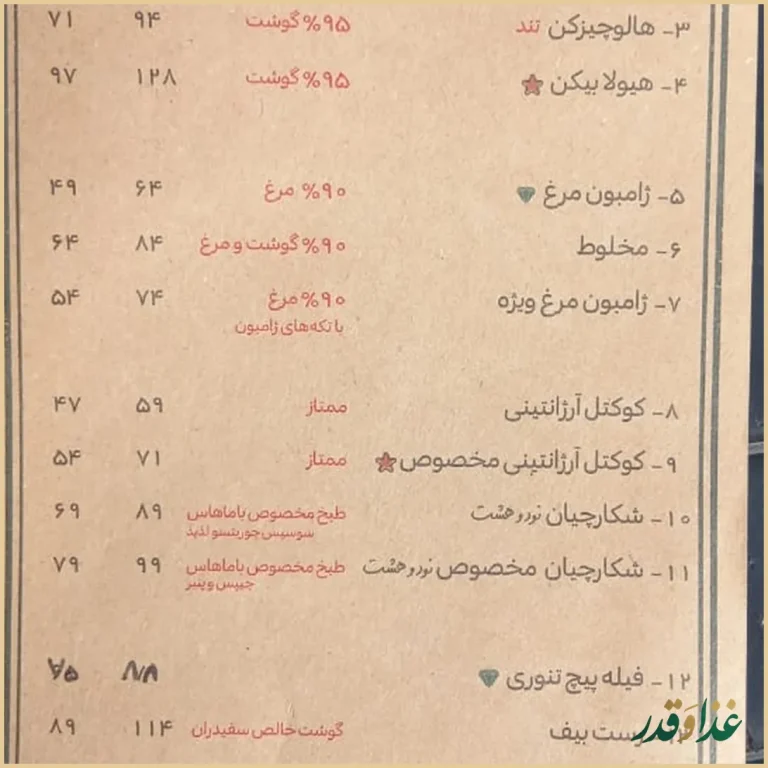 ۳- هالوچیزکن تند %۹۵ گوشت ۹۴ ۷۱
۴- هیولا بیکن %۹۵ گوشت ۱۲۸ ۹۷
۵- ژامبون مرغ %۹۰ مرغ ۶۴ ۴۹
۶- مخلوط %۹۰ گوشت و مرغ ۸۴ ۶۴
۷- ژامبون مرغ ویژه %۹۰ مرغ ۷۴ ۵۴
با تکه های ژامبون
۸- کوکتل آرژانتینی ممتاز ۵۹ ۴۷
۹- کوکتل آرژانتینی مخصوص ممتاز ۷۱ ۵۴
۱۰- شکارچیان نود و هشت طبخ مخصوص باماهاس ۸۹ ۶۹
سوسیس چوریتسو لذیذ
۱۱- شکارچیان مخصوص نود و هشت طبخ مخصوص باماهاس ۹۹ ۷۹
چیپس و پنیر
۱۲- فیله پیچ تنوری
ست بیف گوشت خالص سفیدران ۱۱۴ ۸۹
غذا و قدر